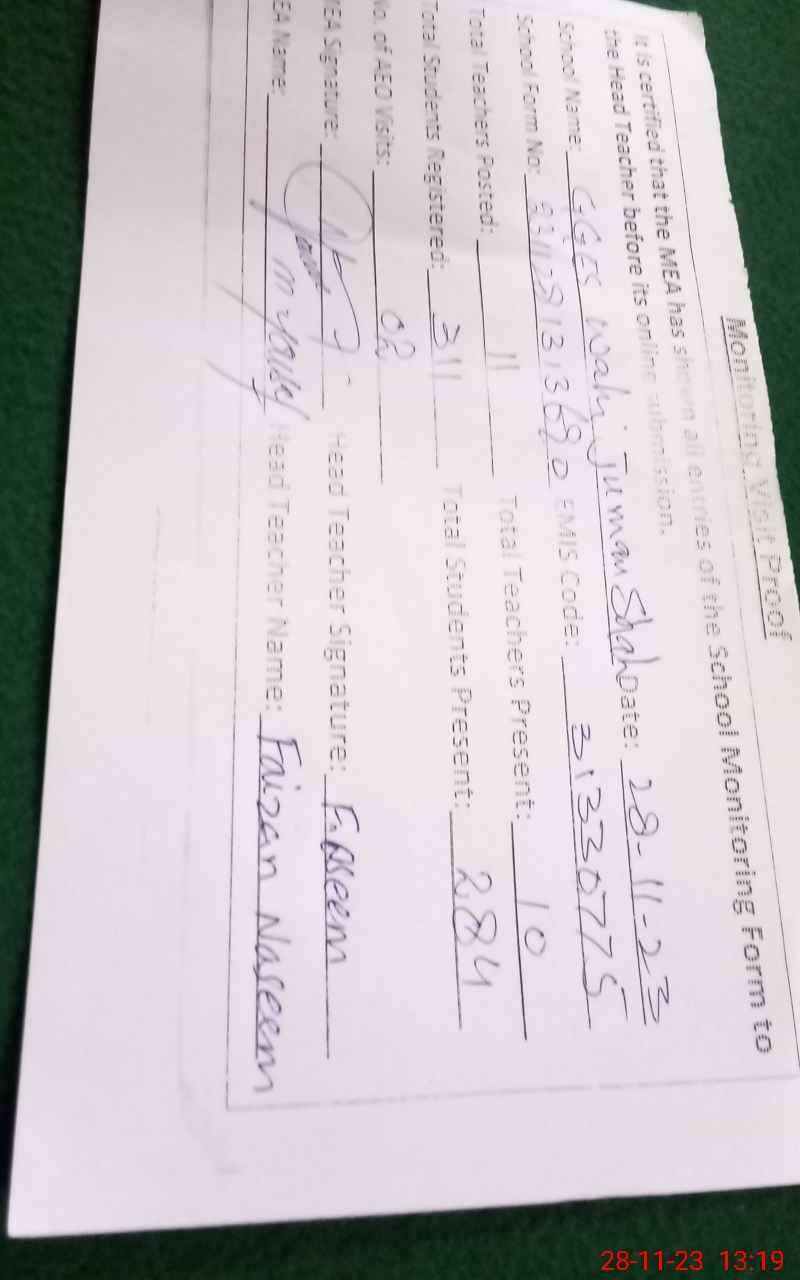 Monitoring Visit Proof
It is certified that the MEA has shown all entries of the School Monitoring Form to
the Head Teacher before its online submission.
School Name: GGES Wahi Juman Shah Date: 28-11-23
School Form No: EMIS Code: 31330775
Total Teachers Posted: 11 Total Teachers Present: 10
Total Students Registered: 311 Total Students Present: 284
No. of AEO Visits: 02
MEA Signature: Head Teacher Signature: F.Naseem
MEA Name: Head Teacher Name: Faizan Naseem
28-11-23 13:19